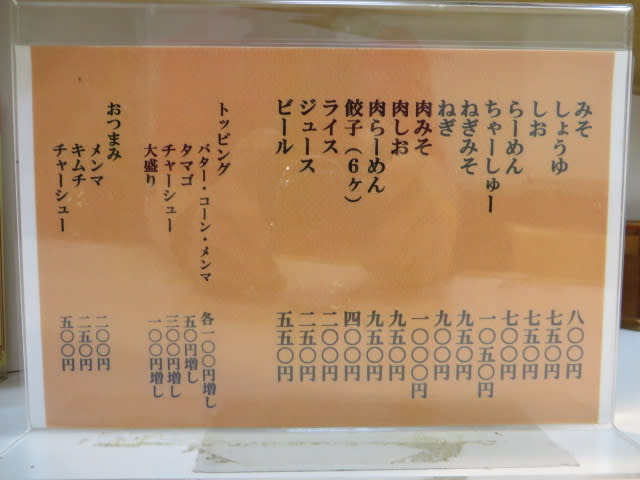 みそ 八〇〇円
しょうゆ 七五〇円
しお 七五〇円
らーめん 七〇〇円
ちゃーしゅー 一〇五〇円
ねぎみそ 九五〇円
ねぎ 九〇〇円
肉みそ 一〇〇〇円
肉しお 九五〇円
肉らーめん 九五〇円
餃子(6ヶ) 四〇〇円
ライス 二〇〇円
ジュース 二五〇円
ビール 五五〇円
トッピング
バター・コーン・メンマ 各一〇〇円増し
タマゴ 五〇円増し
チャーシュー 三〇〇円増し
大盛り 一〇〇円増し
おつまみ
メンマ 二〇〇円
キムチ 二五〇円
チャーシュー 五〇〇円